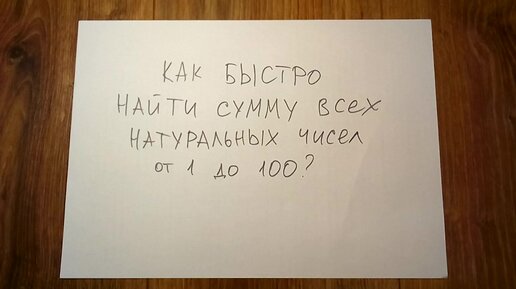 КАК БЫСТРО
НАЙТИ СУММУ ВСЕХ
НАТУРАЛЬНЫХ ЧИСЕЛ
ОТ 1 ДО 100?